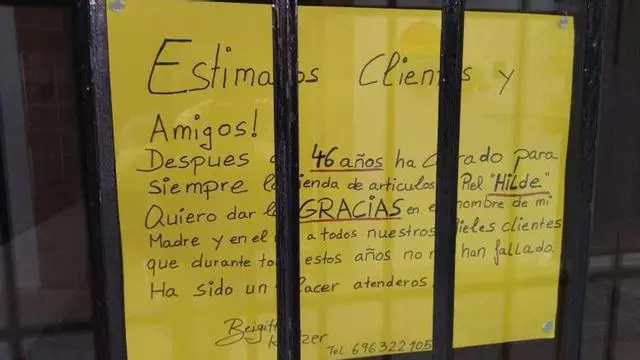 Estimados Clientes y
Amigos!
Despues de 46 años ha cerrado para
siempre la tienda de articulos de Piel "Hilde"
Quiero dar las GRACIAS en el nombre de mi
Madre y en el mio a todos nuestros fieles clientes
que durante todos estos años no nos han fallado.
Ha sido un placer atenderos.
Brigitte
Tel 696322105